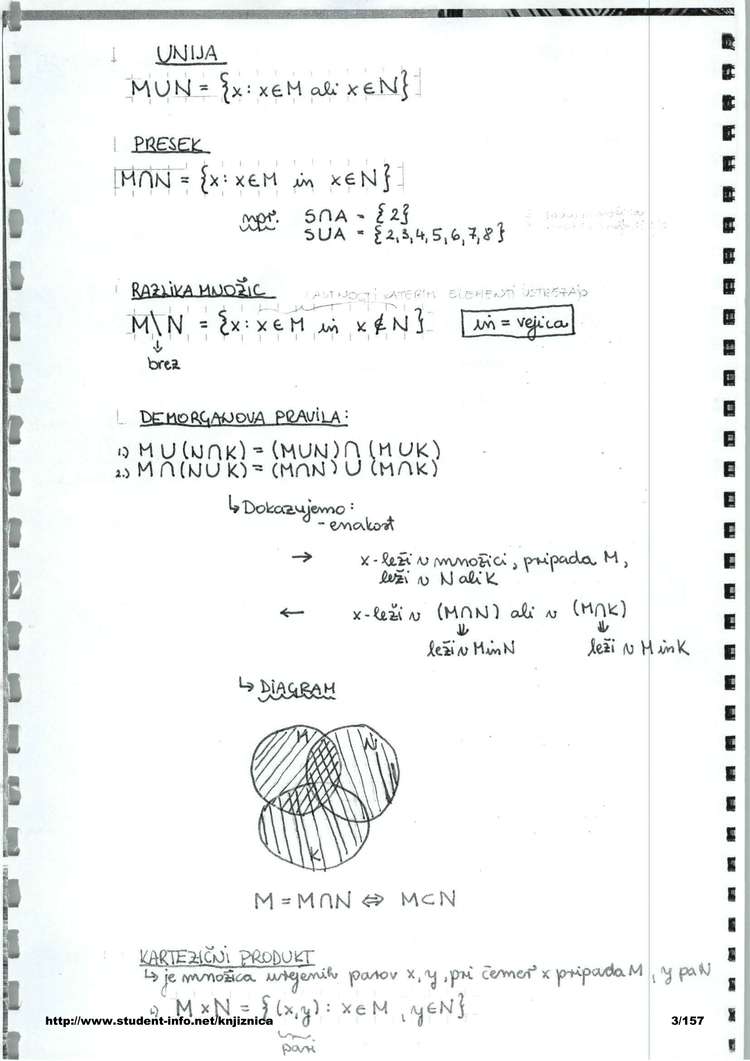 UNIJA
M∪N = {x: x∈M ali x∈N}
PRESEK
M∩N = {x: x∈M in x∈N}
npr. S∩A = {2}
S∪A = {2,3,4,5,6,7,8}
RAZLIKA MNOŽIC
KATERIM ELEMENTI USTREZAJO
M\N = {x: x∈M in x∉N} in = vejica
↓
brez
DEMORGANOVA PRAVILA:
1.) M∪(N∩K) = (M∪N)∩(M∪K)
2.) M∩(N∪K) = (M∩N)∪(M∩K)
↳ Dokazujemo:
- enakost
→ x-leži v množici, pripada M,
leži v N ali K
← x-leži v (M∩N) ali v (M∩K)
⇓ ⇓
leži v M in N leži v M in K
↳ DIAGRAM
M N
K
M = M∩N ⇔ M⊂N
KARTEZIČNI PRODUKT
↳ je množica urejenih parov x, y, pri čemer x pripada M, y pa N
M×N = {(x,y): x∈M, y∈N}
http://www.student-info.net/knjiznica 3/157
pari